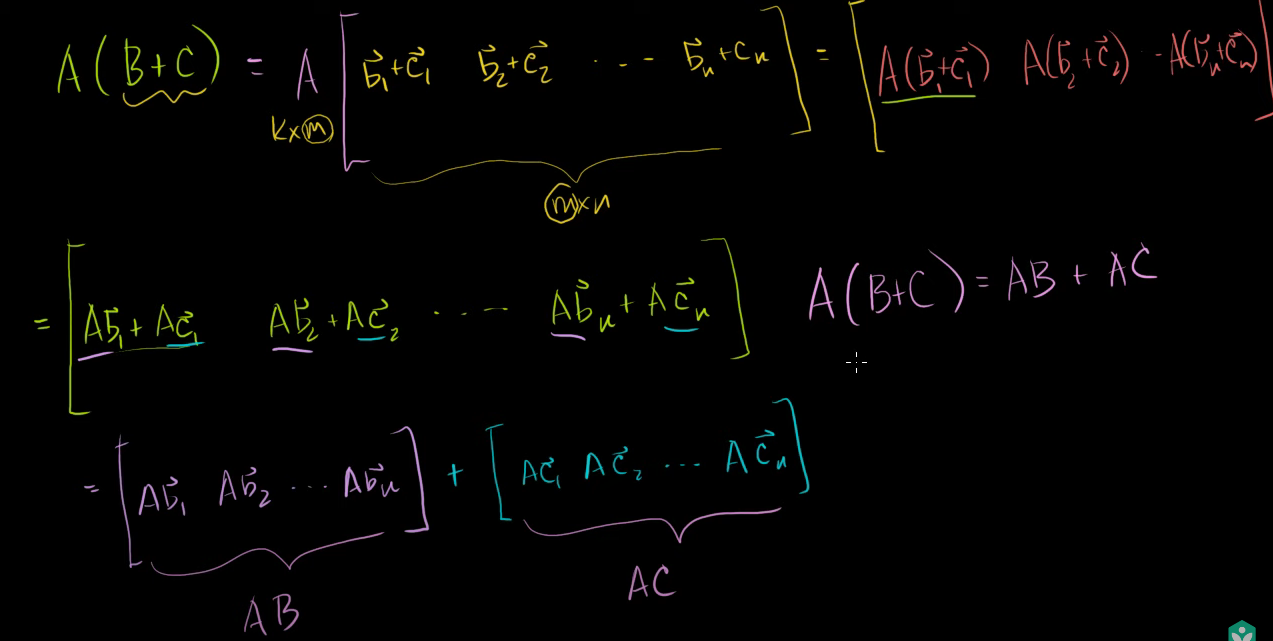 A(B+C) = A [b⃗₁+c⃗₁ b⃗₂+c⃗₂ ... b⃗ₙ+cₙ] = [A(b⃗₁+c⃗₁) A(b⃗₂+c⃗₂) ·· A(b⃗ₙ+c⃗ₙ)]
k×m
m×n
= [Ab⃗₁+Ac⃗₁ Ab⃗₂+Ac⃗₂ ... Ab⃗ₙ+Ac⃗ₙ]
A(B+C) = AB + AC
= [Ab⃗₁ Ab⃗₂ ... Ab⃗ₙ] + [Ac⃗₁ Ac⃗₂ ... Ac⃗ₙ]
AB
AC